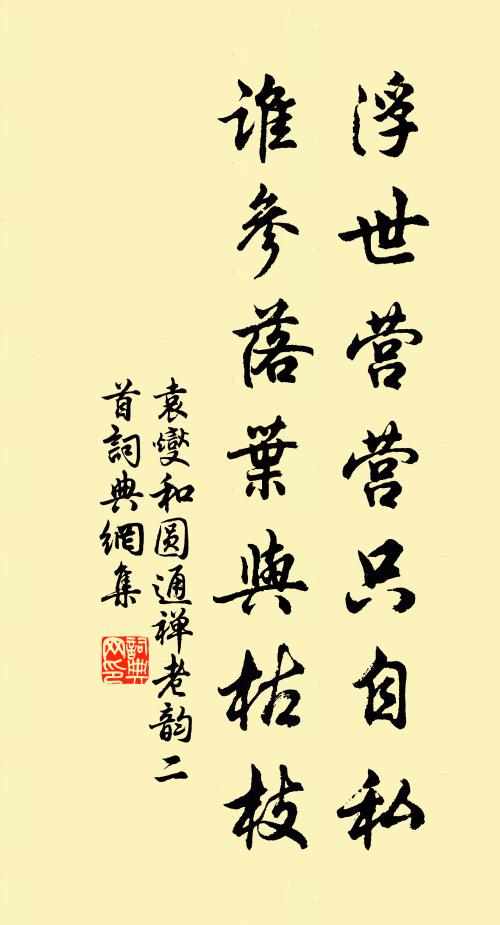 浮世营营只自私
谁参落葉與枯枝
袁燮和圆通禅老韵二
首詞典網集
詞典
网印